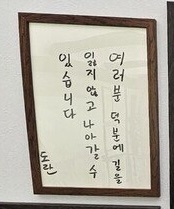 여러분 덕분에 길을
잃지 않고 나아갈 수
있습니다
도란